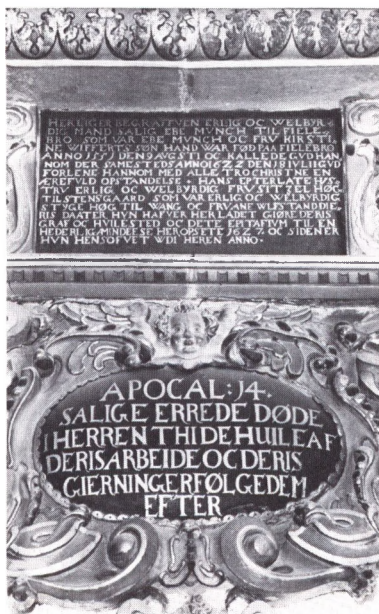 HER LIGER BEGRAFFVEN ERLIG OC WELBYR
DIG MAND SALIG EBE MVNCH TIL FIELLE
BRO SOM VAR EBE MVNCH OC FRV KIRSTI
NE WIFFERTS SØN HAND WAR FØD PAA FIELEBRO
ANNO 1551 DEN 9 AVGSTI OC KALLEDE GVD HAN
NOM DER SAMESTEDS ANNO 1622 DEN 18 IVLII GVD
FORLENE HANNOM MED ALLE TRO CHRISTNE EN
ÆREFVLD OPSTANDELSE HANS EFTERLATE HAS
FRV ERLIG OC WELBYRDIG FRV SITZEL HØG
TILSTENSGAARD SOM VAR ERLIG OC WELBYRDIG
STYGE HØG TIL WANG OC FRV ANE
RIS DAATER HVN HAFVER HER LADET GIØRE DERIS
GRAF OC HVILESTED OC DETE EPITAFIVM TIL EN
HEDERLIG AMINDELSE HER OPSETE 1627 OC SIDEN ER
HVN HENSOFVET VDI HEREN ANNO
APOCAL: 14.
SALIGE ERRE DE DØDE
I HERREN THI DE HUILE AF
DERIS ARBEIDE OC DERIS
GIERNINGER FØLGE DEM
EFTER